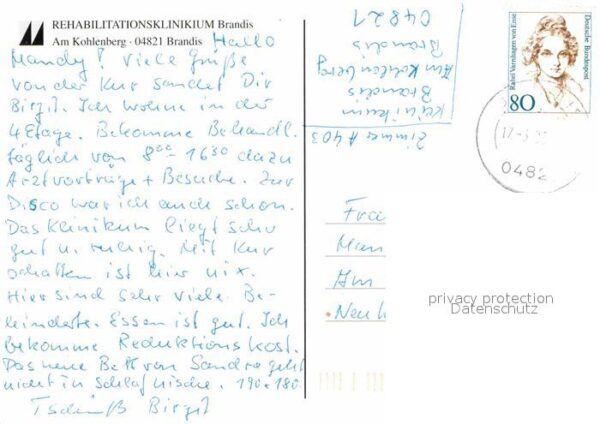 REHABILITATIONSKLINIKUM Brandis
Am Kohlenberg · 04821 Brandis
Hallo
Mandy! Viele Grüße
von der Kur sendet Dir
Birgit. Ich wohne in der
4 Etage. Bekomme Behandl.
täglich von 8⁰⁰ - 16³⁰ dazu
Arztvorträge + Besuche. Zur
Disco war ich auch schon.
Das Klinikum liegt sehr
gut u. ruhig. Mit Kur
schatten ist hier nix.
Hier sind sehr viele Be-
hinderte. Essen ist gut. Ich
bekomme Reduktionskost.
Das neue Bett von Sandra geht
nicht in Schlafnische. 190x180
Tschüß Birgit
Zimmer A 403
Klinikum
Brandis
Am Kohlenberg
Brandis
04821
Rahel Varnhagen von Ense
Deutsche Bundespost
80
0482
Frä
Man
Am
Neu
privacy protection
Datenschutz